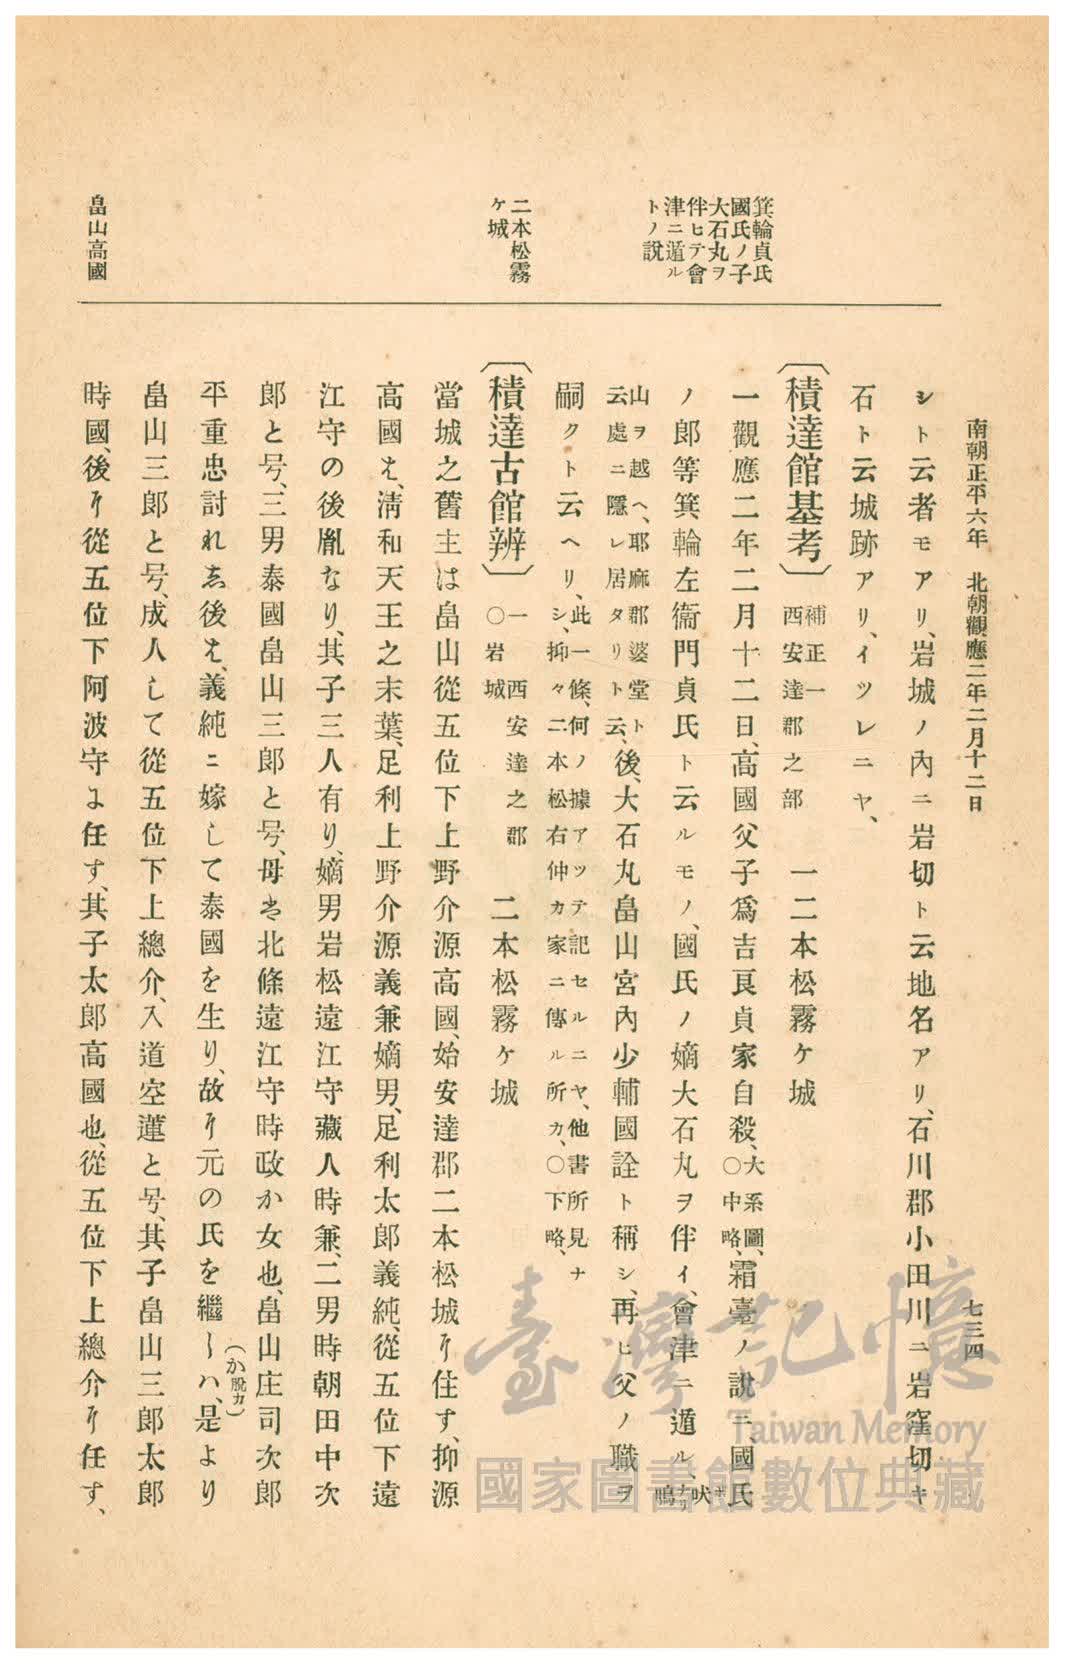 南朝正平六年 北朝觀應二年二月十二日
七三四
箕輪貞氏
國氏ノ子
大石丸ヲ
伴ヒテ會
津ニ遁ル
トノ說
二本松霧
ケ城
畠山高國
シト云者モアリ、岩城ノ內ニ岩切ト云地名アリ、石川郡小田川ニ岩窪切キ
石ト云城跡アリ、イツレニヤ、
〔積達館基考〕補正一西安達郡之部 一二本松霧ケ城
一觀應二年二月十二日、高國父子爲吉良貞家自殺、大系圖、〇中略、霜臺ノ說ニ、國氏
ノ郎等箕輪左衞門貞氏ト云ルモノ、國氏ノ嫡大石丸ヲ伴イ、會津ニ遁ル、吠鳴
山ヲ越ヘ、耶麻郡婆堂ト云處ニ隱レ居タリト云、後、大石丸畠山宮內少輔國詮ト稱シ、再ヒ父ノ職ヲ
嗣クト云ヘリ、此一條、何ノ據アツテ記セルニヤ、他書所見ナシ、抑々二本松右仲カ家ニ傳ル所カ、〇下略、
〔積達古館辨〕一 西安達之郡〇岩城 二本松霧ケ城
當城之舊主は畠山從五位下上野介源高國、始安達郡二本松城り住す、抑源
高國ハ、淸和天王之末葉、足利上野介源義兼嫡男、足利太郎義純、從五位下遠
江守の後胤なり、其子三人有り、嫡男岩松遠江守藏人時兼、二男時朝田中次
郎と号、三男泰國畠山三郎と号、母者北條遠江守時政か女也、畠山庄司次郎
平重忠討れゑ後ハ、義純ニ嫁して泰國を生り、故り元の氏を繼しハ、是より
（か脫カ）
畠山三郎と号、成人して從五位下上總介、入道空蓮と号、其子畠山三郎太郎
時國、後り從五位下阿波守よ任す、其子太郎高國也、從五位下上總介り任す、
臺灣記憶
Taiwan Memory
國家圖書館數位典藏